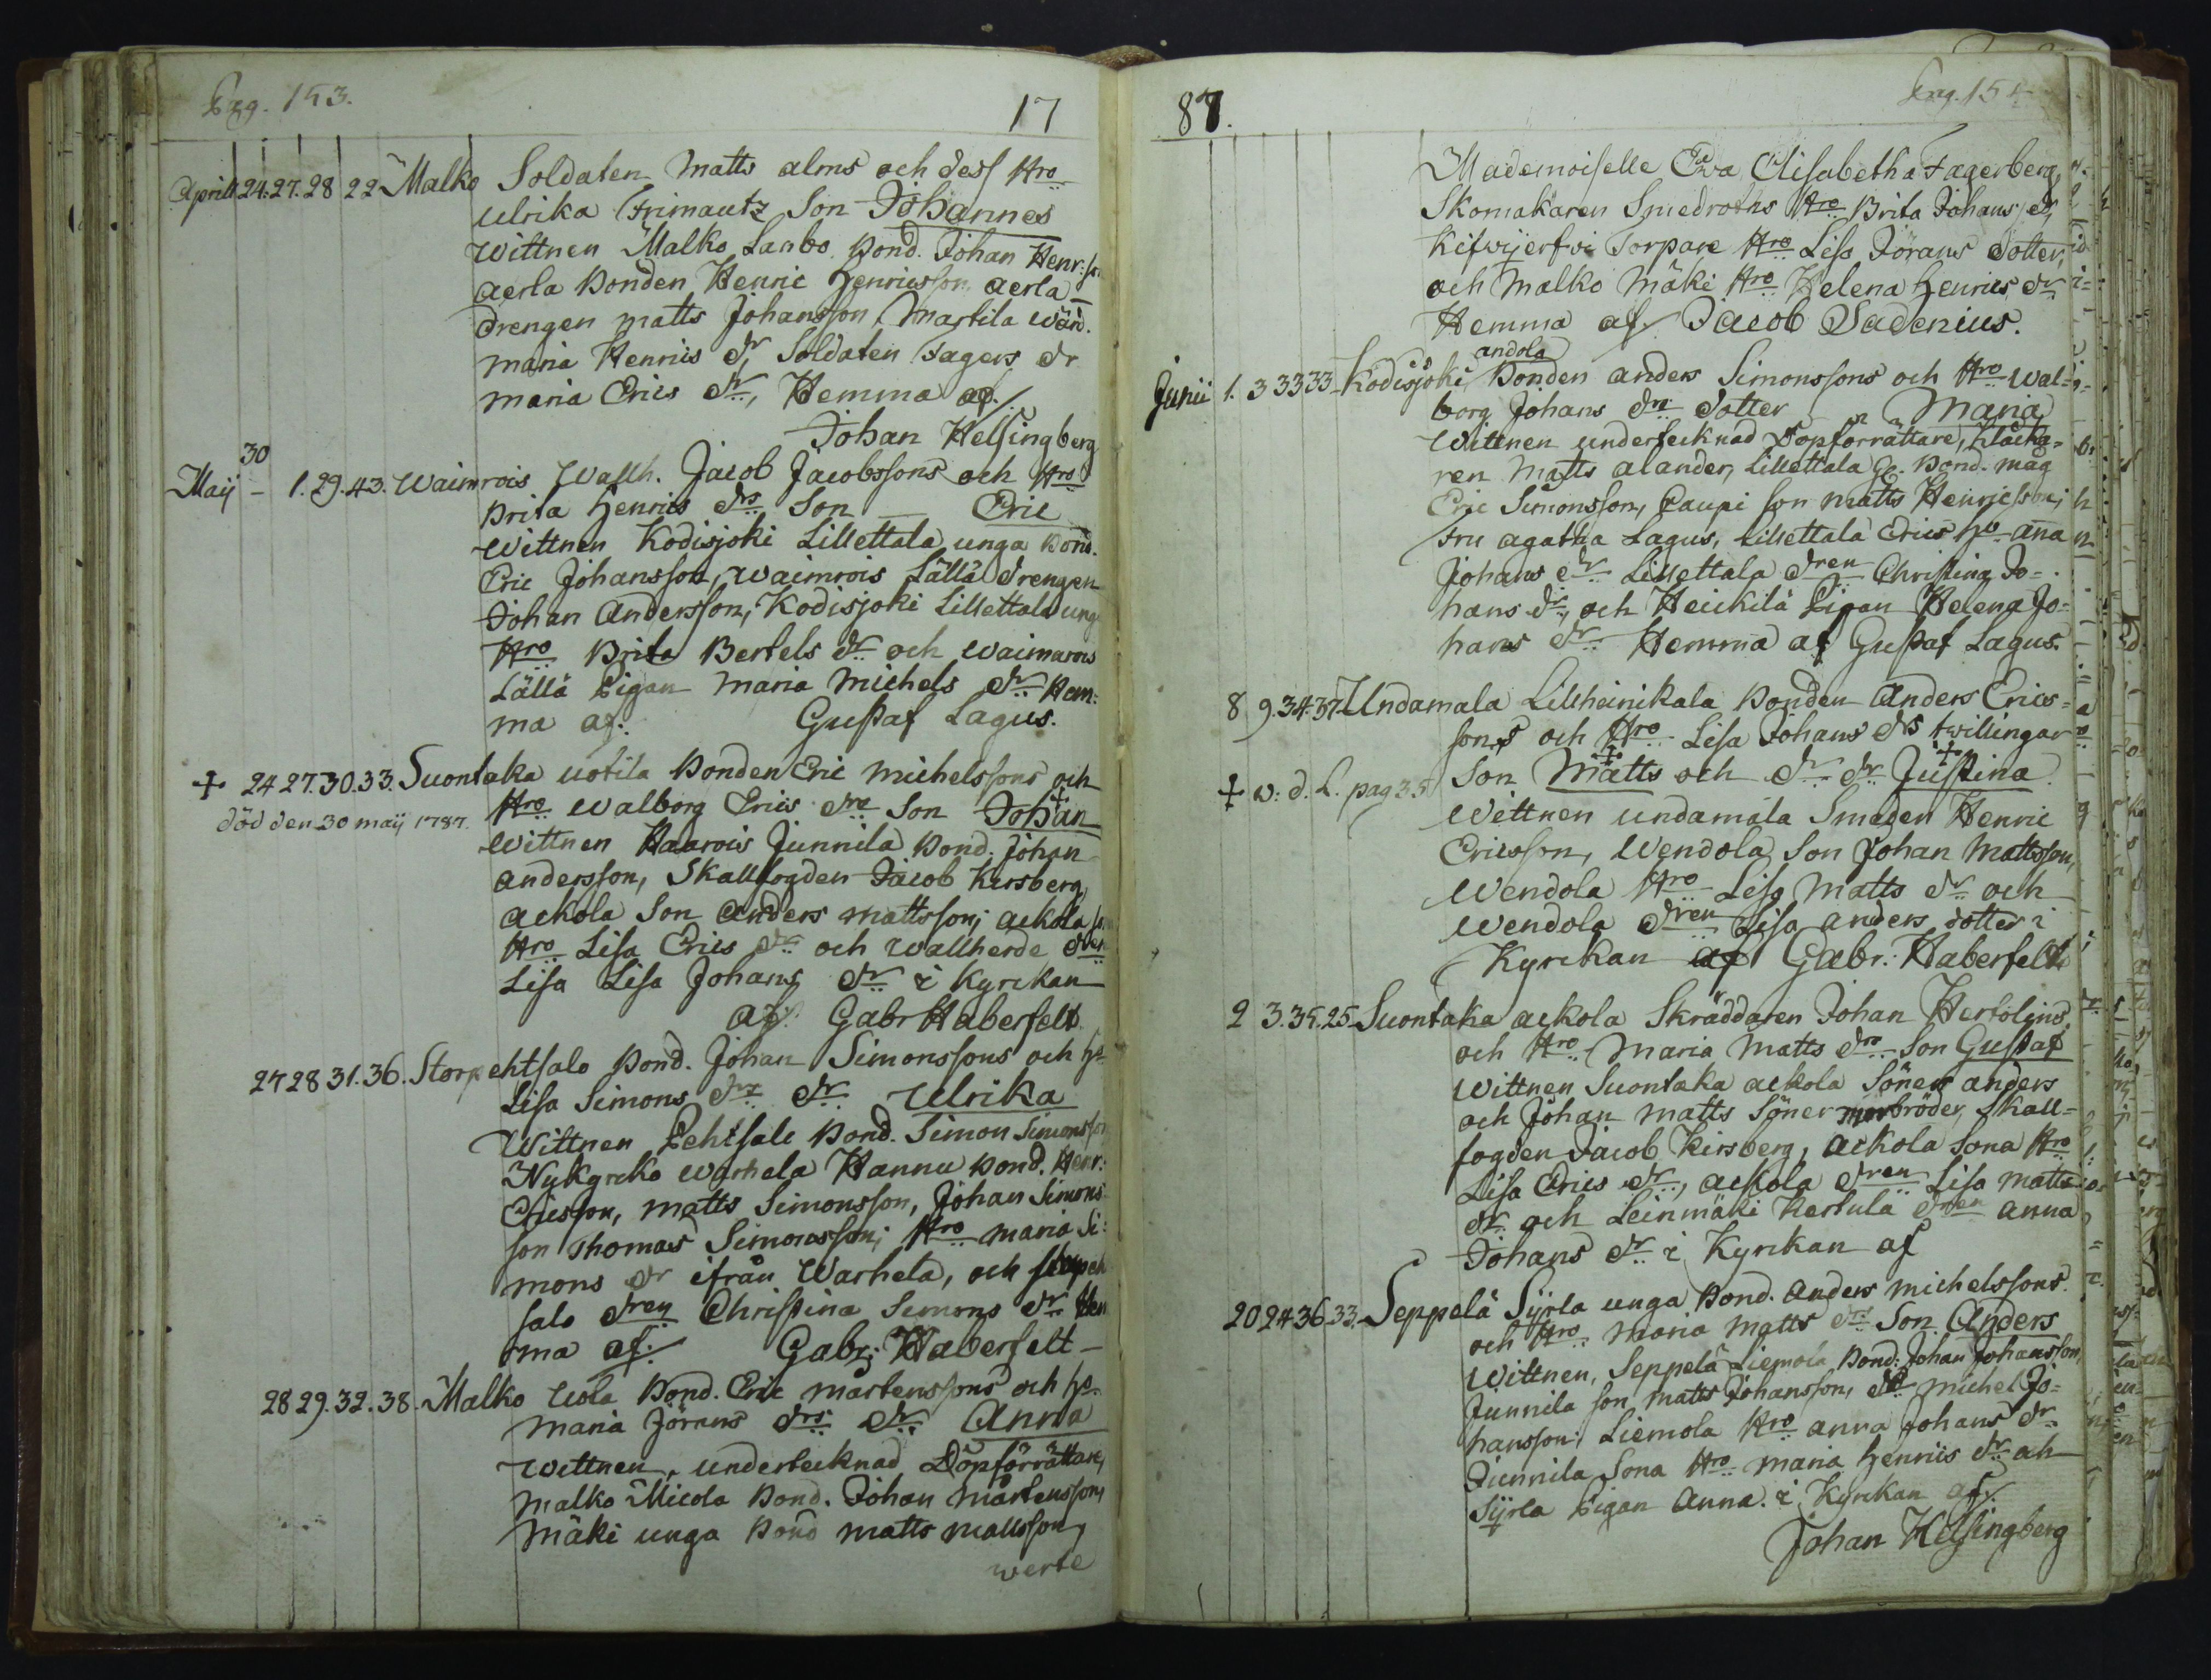 Pag. 153.
17
Aprill 24. 27. 28 22 Malko Soldaten Matts alms och dess Hro
Ulrika Frimautz Son Johannes
Wittnen Malko Lanbo Bond. Johan Henr:
aerla Bonden Henric Henricsson aerla
drengen matts Johansson Martila wärd.
maria Henrics dr, Soldaten Fagers dr
maria Erics dr, Hemma af.
Johan Helsingberg
Maij 30 - 1. 29. 43. Waimrois Wallh. Jacob Jacobssons och Hro
Brita Henrics drs Son — Eric
Wittnen Kodisjoki Lillettala unga Bond.
Eric Johansson, Waimrois Lällä drengen
Johan Andersson, Kodisjoki Lillettala ung
Hro Brita Bertels dr och Waimarois
Lällä Pigan Maria Michels dr Hem:
ma af: Gustaf Lagus.
+ 24 27. 30. 33. Suontaka uotila Bonden Eric Michelssons och
död den 30 maij 1787. Hro Walborg Erics drs Son Johan +
Wittnen Haarois Junnila Bond. Johan
andersson, Skallfogden Jacob Kirsberg,
ackola Son Anders mattsson, ackola
Hro Lisa Erics dr och wallherde dren
Lisa Lisa Johans dr i Kyrckan
af: Gabr Haberfelt.
27 28 31. 36. Storpehtsalo Bond. Johan Simonssons och Ho
Lisa Simons drs dr Ulrika
Wittnen Pehtsale Bond. Simon Simonsson
Nykyrcko Warhela Hannu Bond. Henr:
Ericsson, matts Simonsson, Johan Simons
son Thomas Simonsson; Hro maria Si:
mons dr ifrån Warhela, och
salo dren Christina Simons dr Hem
ma af: Gabr: Haberfelt
28 29. 32. 38. Malko Uola Bond. Eric mårtenssons och Ho.
maria Jörans drs dr Anna
Wittnen, undertecknad Döpförrättare,
malko Micola Bond. Johan Mårtensson,
Mäki unga Bond matts mattsson,
werte
87.
Pag. 154
Mademoiselle Eva Elisabetha Fagerberg,
Skomakaren Smedroths Hro Brita Johans dr,
Kifwijerfvi Torpare Hro Lisa Jörans dotter,
och Malko Mäki Hro Helena Henrics dr
Hemma af. Jacob Sadenius.
andola
Junii 1. 3 33 33 Kodisjoki Bonden anders Simonssons och Hro Wal=
borg Johans drs dotter Maria
Wittnen undertecknad Döpförrättare, Klåcka=
ren Matts alander, Lillettala Gr. Bond. måg
Eric Simonsson, Caupi son matts Henricsson;
Fru agatha Lagus, Lillettala Erics Ho anna
Johans dr Lillettala dren Christina Jo=
hans dr, och Heickilä Pigan Helena Jo=
hans dr Hemma af Gustaf Lagus.
8 9. 34. 37. Undamala Lillheinikala Bonden Anders Erics=
sons och Hro Lisa Johans drs twillingar
+ w: d. L. pag 35 Son Matts + och dr dr Justina +
Wittnen undamala Smeden Henric
Ericsson, Wendola Son Johan Mattsson,
Wendola Hro Lisa Matts dr och
Wendola dren Lisa anders dotter i
Kyrckan af Gabr: Haberfelt
2 3. 35. 25 Suontaka ackola Skräddaren Johan Hertolins
och Hro Maria Matts drs Son Gustaf
Wittnen Suontaka ackola Söner anders
och Johan matts Söner morbröder, Skall=
fogden Jacob Keirsberg, ackola Sona Hro
Lisa Erics dr, ackola dren Lisa matts
dr och Leinmäki Kertula dren anna
Johans dr i Kyrckan af
20 24 36 33. Seppelä Sijrla unga Bond. Anders Michelssons
och Hro Maria Matts drs Son Anders
Wittnen, Seppelä Liemola Bond: Johan Johansson,
Junnila son Matts Johansson, do Michel Jo=
hansson, Liemola Hro anna Johans dr
Junnila Sona Hro maria Henriis dr ah
Sijrla Pigan Anna. i Kyrckan af:
Johan Helsingberg